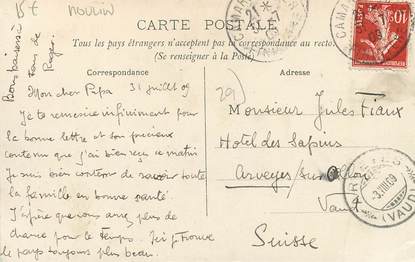 15 € MOULIN
CARTE POSTALE
Tous les pays étrangers n'acceptent pas la correspondance au recto.
(Se renseigner à la Poste)
Correspondance
Adresse
Mon cher Papa 31 juillet 09
Je te remercie infiniment pour
ta bonne lettre et son précieux
contenu que j'ai bien reçu ce matin
Je suis bien content de savoir toute
la famille en bonne santé.
J'espère que vous avez plus de
chance pour le temps. Ici je trouve
le pays toujours plus beau.
Bons baisers à
tous de
Roger.
29
Monsieur Jules Fiaux
Hotel des Sapins
Arveyes sur Ollon
Vaud
Suisse
CAMA
CAMA
10c
POSTES
ARVEYES
-3.VIII.09
(VAUD)